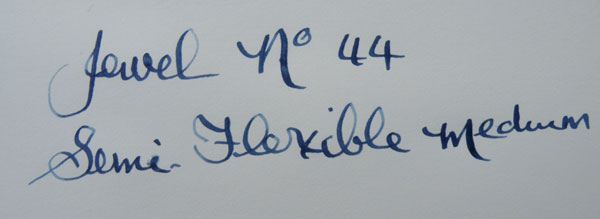 Jewel Nº 44
Semi-Flexible Medium